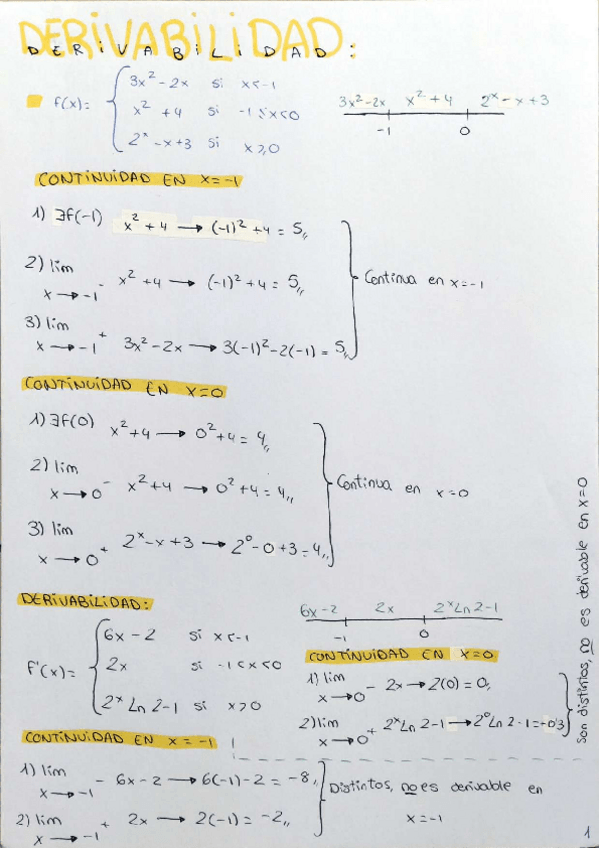 DERIVABILIDAD:
DERIVABILIDAD:
f(x)= { 3x² - 2x si x < -1
x² + 4 si -1 ≤ x < 0
2ˣ - x + 3 si x ≥ 0
3x² - 2x x² + 4 2ˣ - x + 3
-1 0
CONTINUIDAD EN x = -1
1) ∃f(-1) x² + 4 → (-1)² + 4 = 5,,
2) lim x → -1⁻ x² + 4 → (-1)² + 4 = 5,,
3) lim x → -1⁺ 3x² - 2x → 3(-1)² - 2(-1) = 5,,
Continua en x = -1
CONTINUIDAD EN x = 0
1) ∃f(0) x² + 4 → 0² + 4 = 4,,
2) lim x → 0⁻ x² + 4 → 0² + 4 = 4,,
3) lim x → 0⁺ 2ˣ - x + 3 → 2⁰ - 0 + 3 = 4,,
Continua en x = 0
DERIVABILIDAD:
f'(x)= { 6x - 2 si x < -1
2x si -1 < x < 0
2ˣ Ln 2 - 1 si x > 0
6x - 2 2x 2ˣ Ln 2 - 1
-1 0
CONTINUIDAD EN x = 0
1) lim x → 0⁻ 2x → 2(0) = 0,,
2) lim x → 0⁺ 2ˣ Ln 2 - 1 → 2⁰ Ln 2 - 1 = -0'3
Son distintos, no es derivable en x = 0
CONTINUIDAD EN x = -1
1) lim x → -1⁻ 6x - 2 → 6(-1) - 2 = -8,,
2) lim x → -1⁺ 2x → 2(-1) = -2,,
Distintos, no es derivable en
x = -1
1